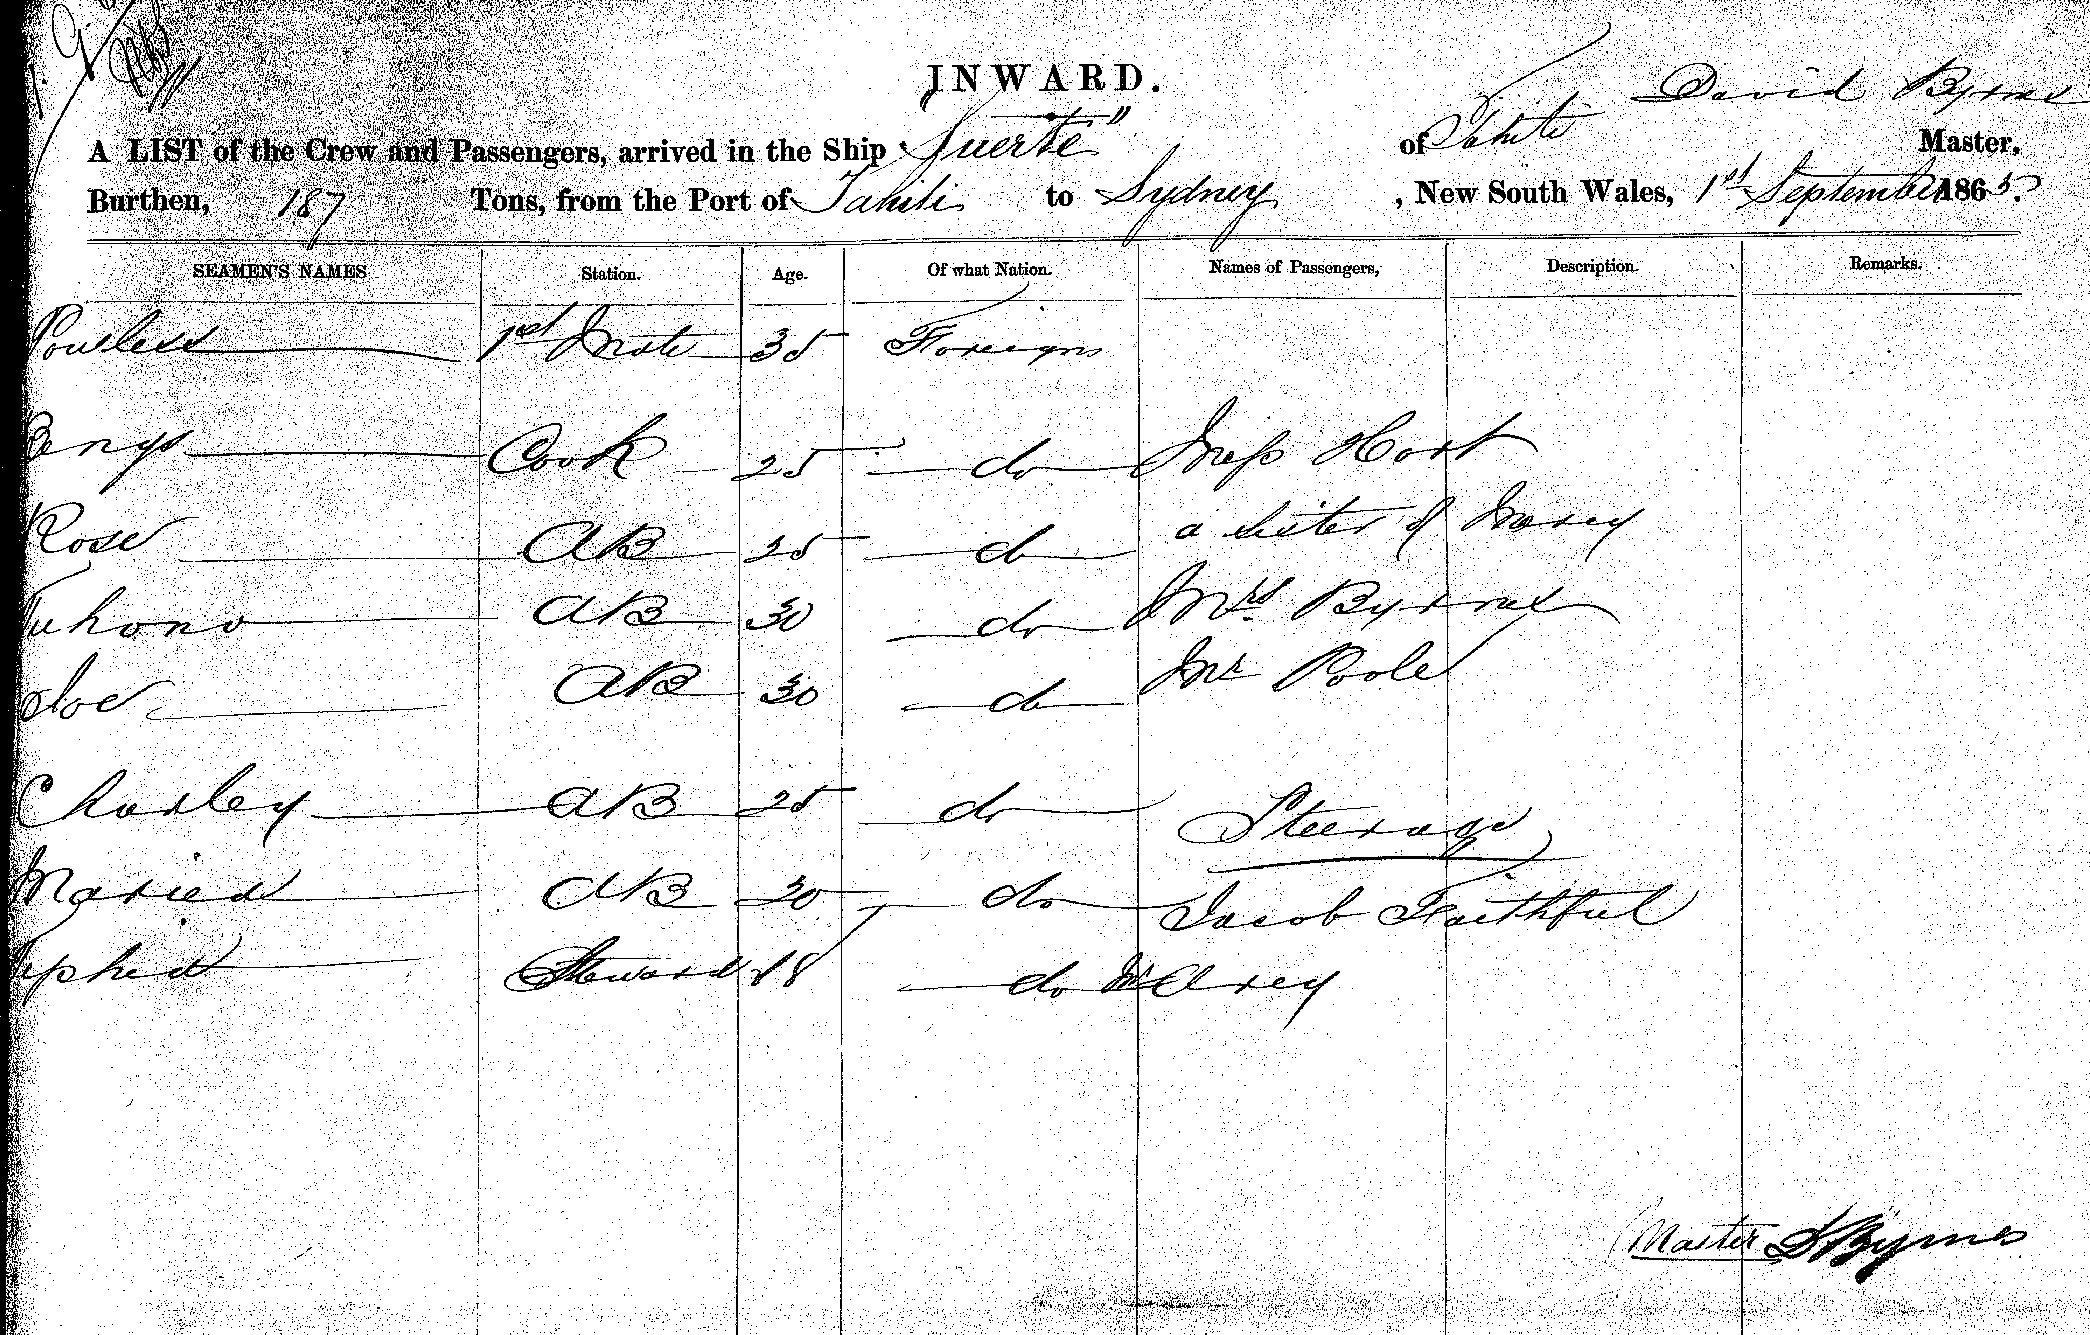 INWARD.
David Byrnes
A LIST of the Crew and Passengers, arrived in the Ship "Fuerte" of Tahiti Master,
Burthen, 187 Tons, from the Port of Tahiti to Sydney, New South Wales, 1st September 1865.
SEAMEN'S NAMES Station. Age. Of what Nation. Names of Passengers, Description. Remarks.
1st Mate 35 Foreign
Cook 25 do Miss Hort
Rose AB 25 do a Sister of Mercy
Tuhono AB 30 do Mrs. Byrnes
Joe AB 30 do Mr Poole
Charley AB 25 do Steerage
AB 30 do Jacob Faithful
Steward 18 do
Master D Byrnes